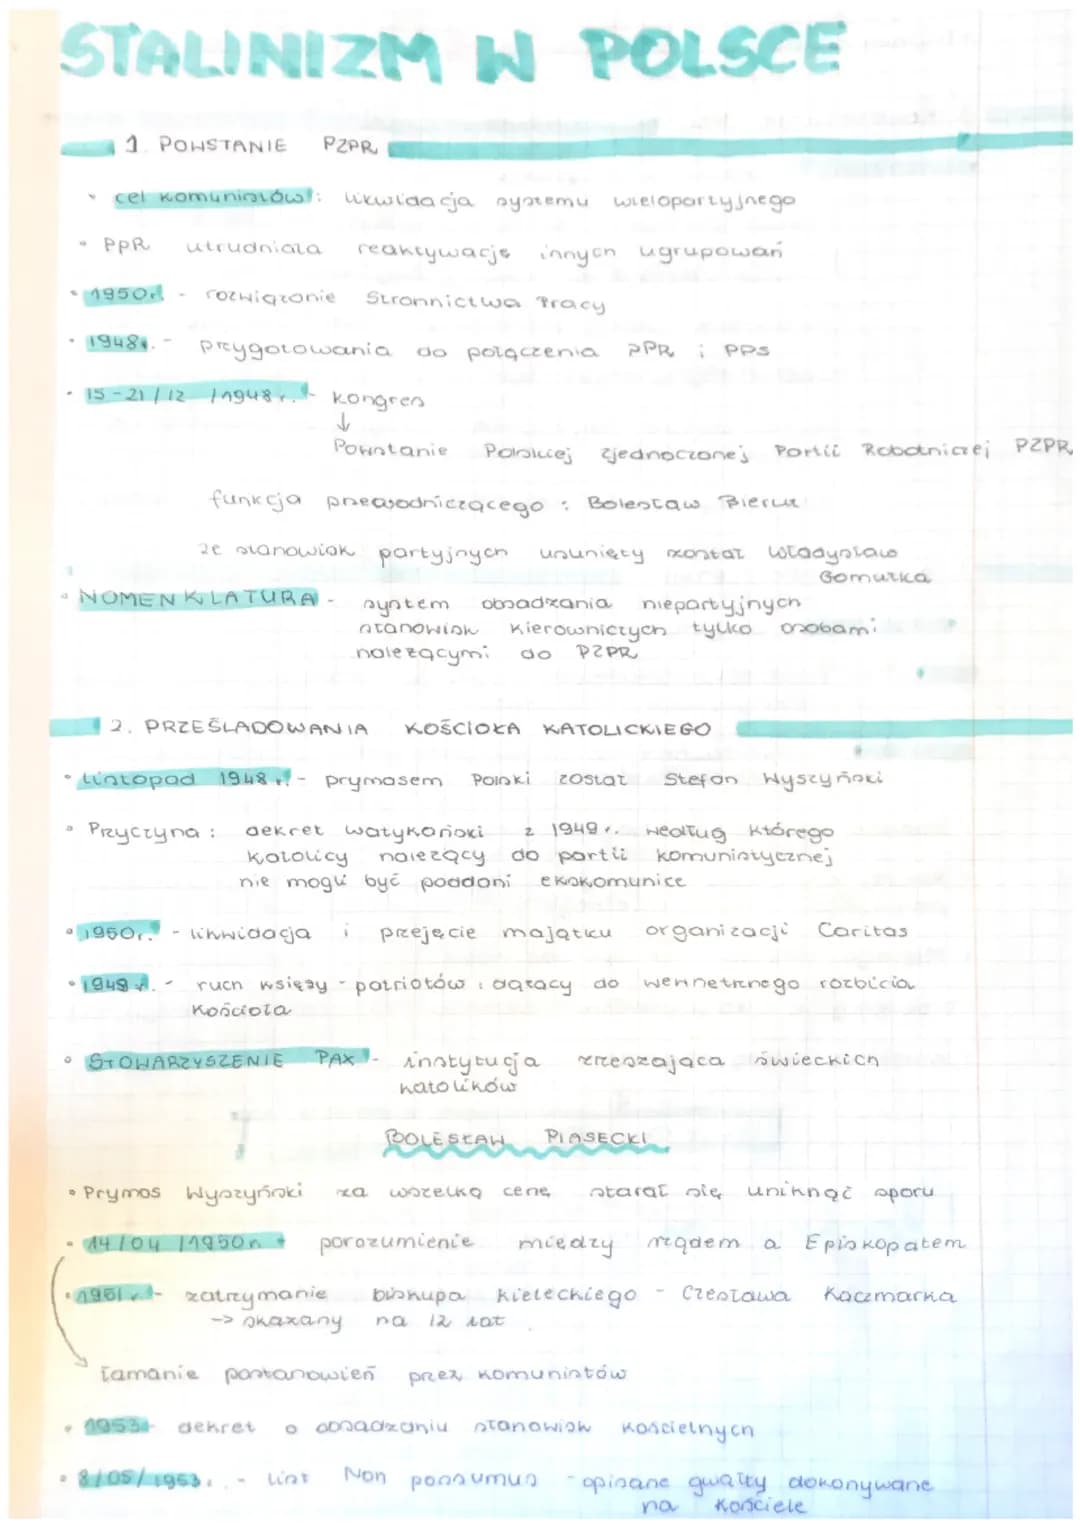 STALINIZM W POLSCE
1. POWSTANIE PZPR
• cel komunistów: likwidacja systemu wielopartyjnego
• PPR utrudniała reaktywację innych ugrupowań
• 1950r. - rozwiązanie Stronnictwa Pracy
• 1948r. - przygotowania do połączenia PPR i PPS
• 15-21/12/1948r. - kongres
↓
Powstanie Polskiej Zjednoczonej Partii Robotniczej PZPR
funkcja przewodniczącego : Bolesław Bierut
ze stanowisk partyjnych usunięty został Władysław
Gomułka
• NOMENKLATURA - system obsadzania niepartyjnych
stanowisk kierowniczych tylko osobami
należącymi do PZPR
2. PRZEŚLADOWANIA KOŚCIOŁA KATOLICKIEGO
• Listopad 1948r. - prymasem Polski został Stefan Wyszyński
• Przyczyna : dekret watykański z 1949r. według którego
katolicy należący do partii komunistycznej
nie mogli być poddani ekskomunice
• 1950r. - likwidacja i przejęcie majątku organizacji Caritas
• 1949r. - ruch księży - patriotów : dążący do wewnętrznego rozbicia
Kościoła
• STOWARZYSZENIE PAX - instytucja zrzeszająca świeckich
katolików
BOLESŁAW PIASECKI
• Prymas Wyszyński za wszelką cenę starał się uniknąć sporu
• 14/04/1950r. + porozumienie między rządem a Episkopatem
• 1951r. - zatrzymanie biskupa kieleckiego - Czesława Kaczmarka
-> skazany na 12 lat
łamanie postanowień przez komunistów
• 1953 - dekret o obsadzaniu stanowisk kościelnych
• 8/05/1953r. - list Non possumus - opisane gwałty dokonywane
na Kościele